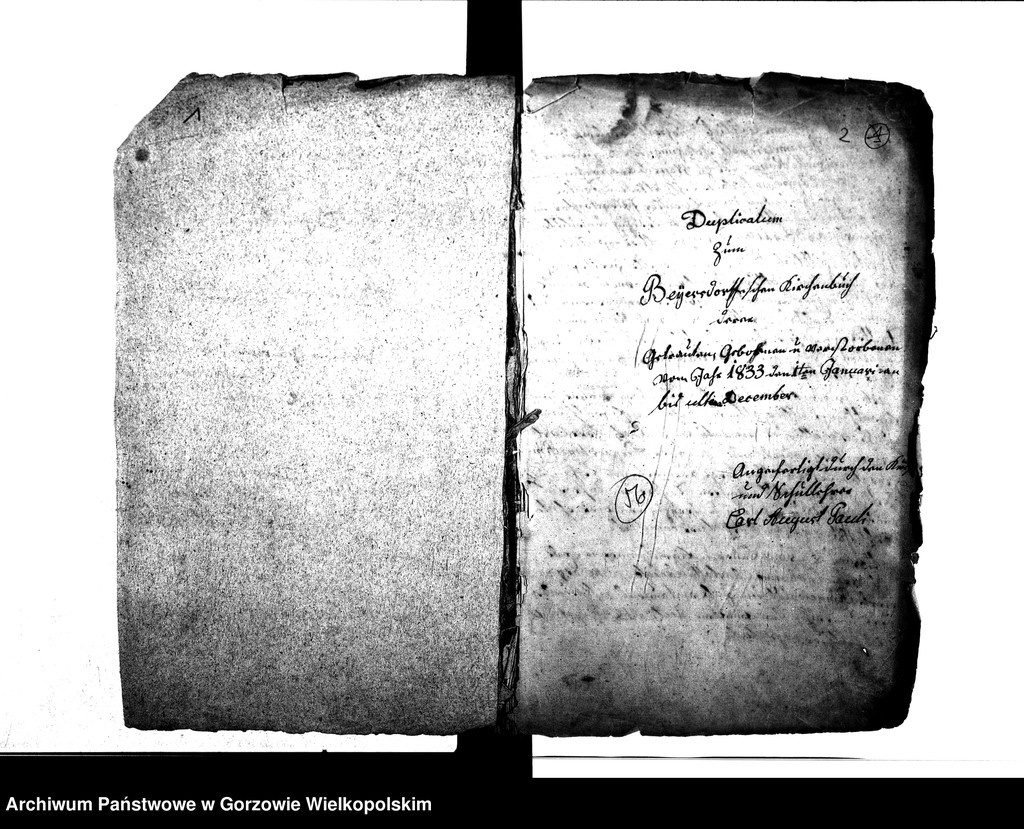 1
2
Duplicatum
zum
Beyersdorffischen Kirchenbuch
derer
Getrauten, Gebohrnen u Verstorbenen
vom Jahr 1833 den 1ten Januari an
bis ult. December
56
Angefertigt durch den
und Schullehrer
Carl August
Archiwum Państwowe w Gorzowie Wielkopolskim